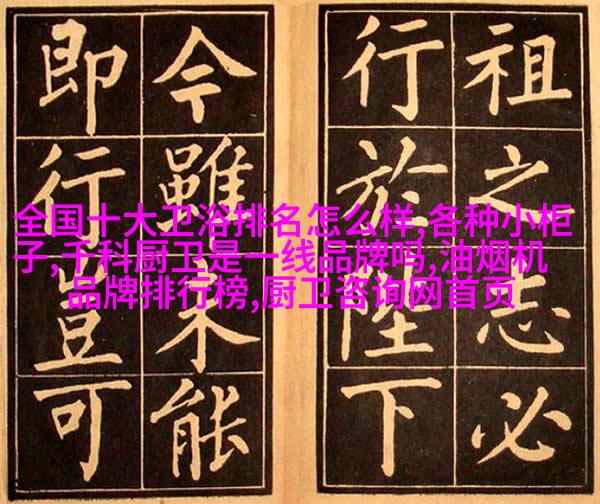 祖之志必
行於陛下
今雖未能
即行豈可
全国十大卫浴排名怎么样,各种小柜
子,千科厨卫是一线品牌吗,油烟机
品牌排行榜,厨卫咨询网首页